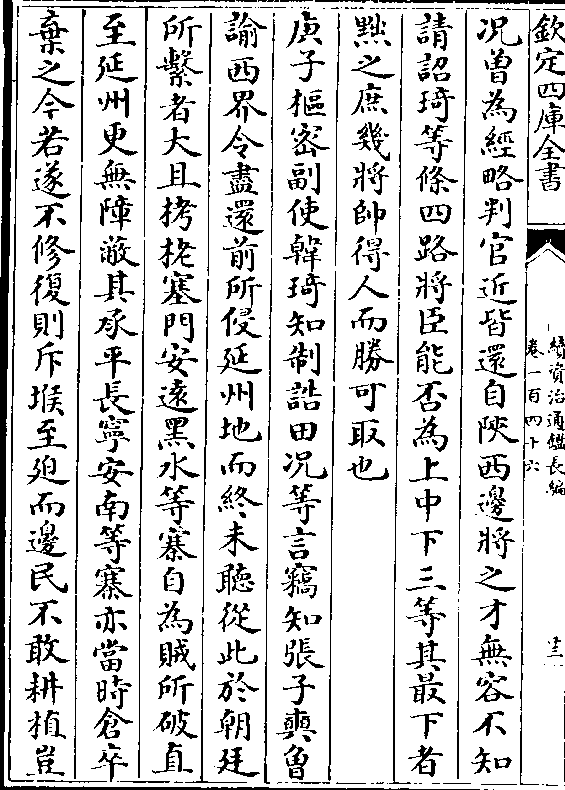 欽定四庫全書
續資治通鑑長編
卷一百四十六
況曽為經略判官近皆還自陜西邊將之才無容不知
請詔琦等條四路將臣能否為上中下三等其最下者
黜之庶幾將帥得人而勝可取也
庚子樞密副使韓琦知制誥田況等言竊知張子奭魯
諭西界令盡還前所侵延州地而終未聽從此於朝廷
所繫者大且栲栳塞門安逺黑水等寨自為賊所破直
至延州更無障蔽其承平長寧安南等寨亦當時倉卒
棄之今若遂不修復則斥堠至廹而邊民不敢耕植豈